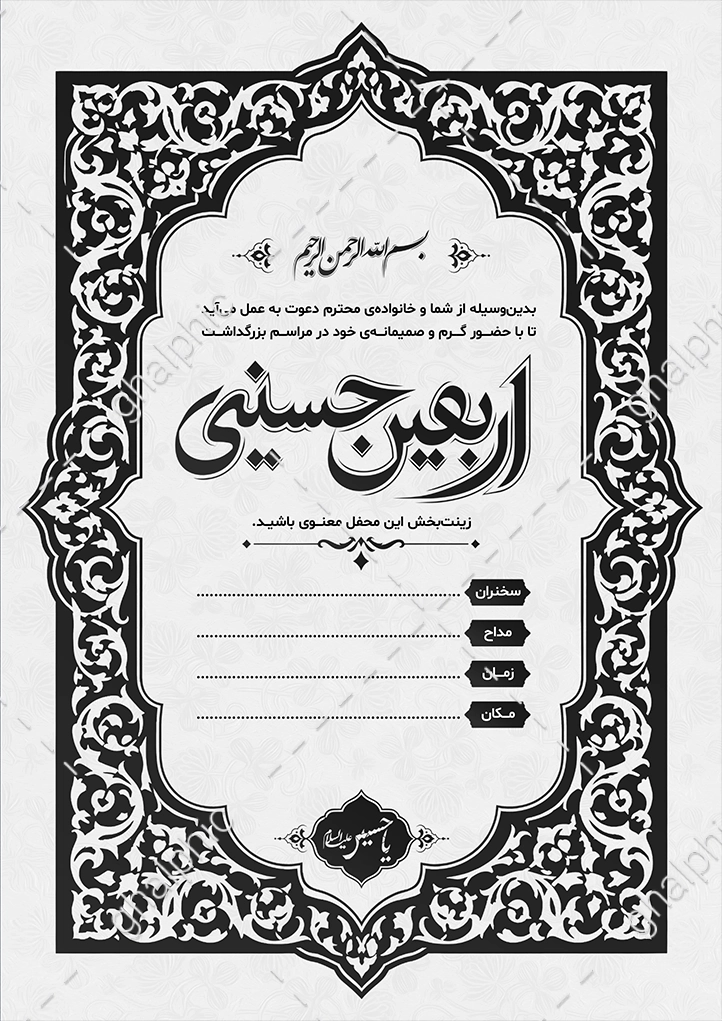 بسم الله الرحمن الرحیم
بدین‌وسیله از شما و خانواده‌ی محترم دعوت به عمل می‌آید
تا با حضور گرم و صمیمانه‌ی خود در مراسم بزرگداشت
اربعین حسینی
زینت‌بخش این محفل معنوی باشید.
سخنران
مداح
زمان
مکان
یا حسین علیه السلام
ghalphic
ghalphic
ghalphic
ghalphic